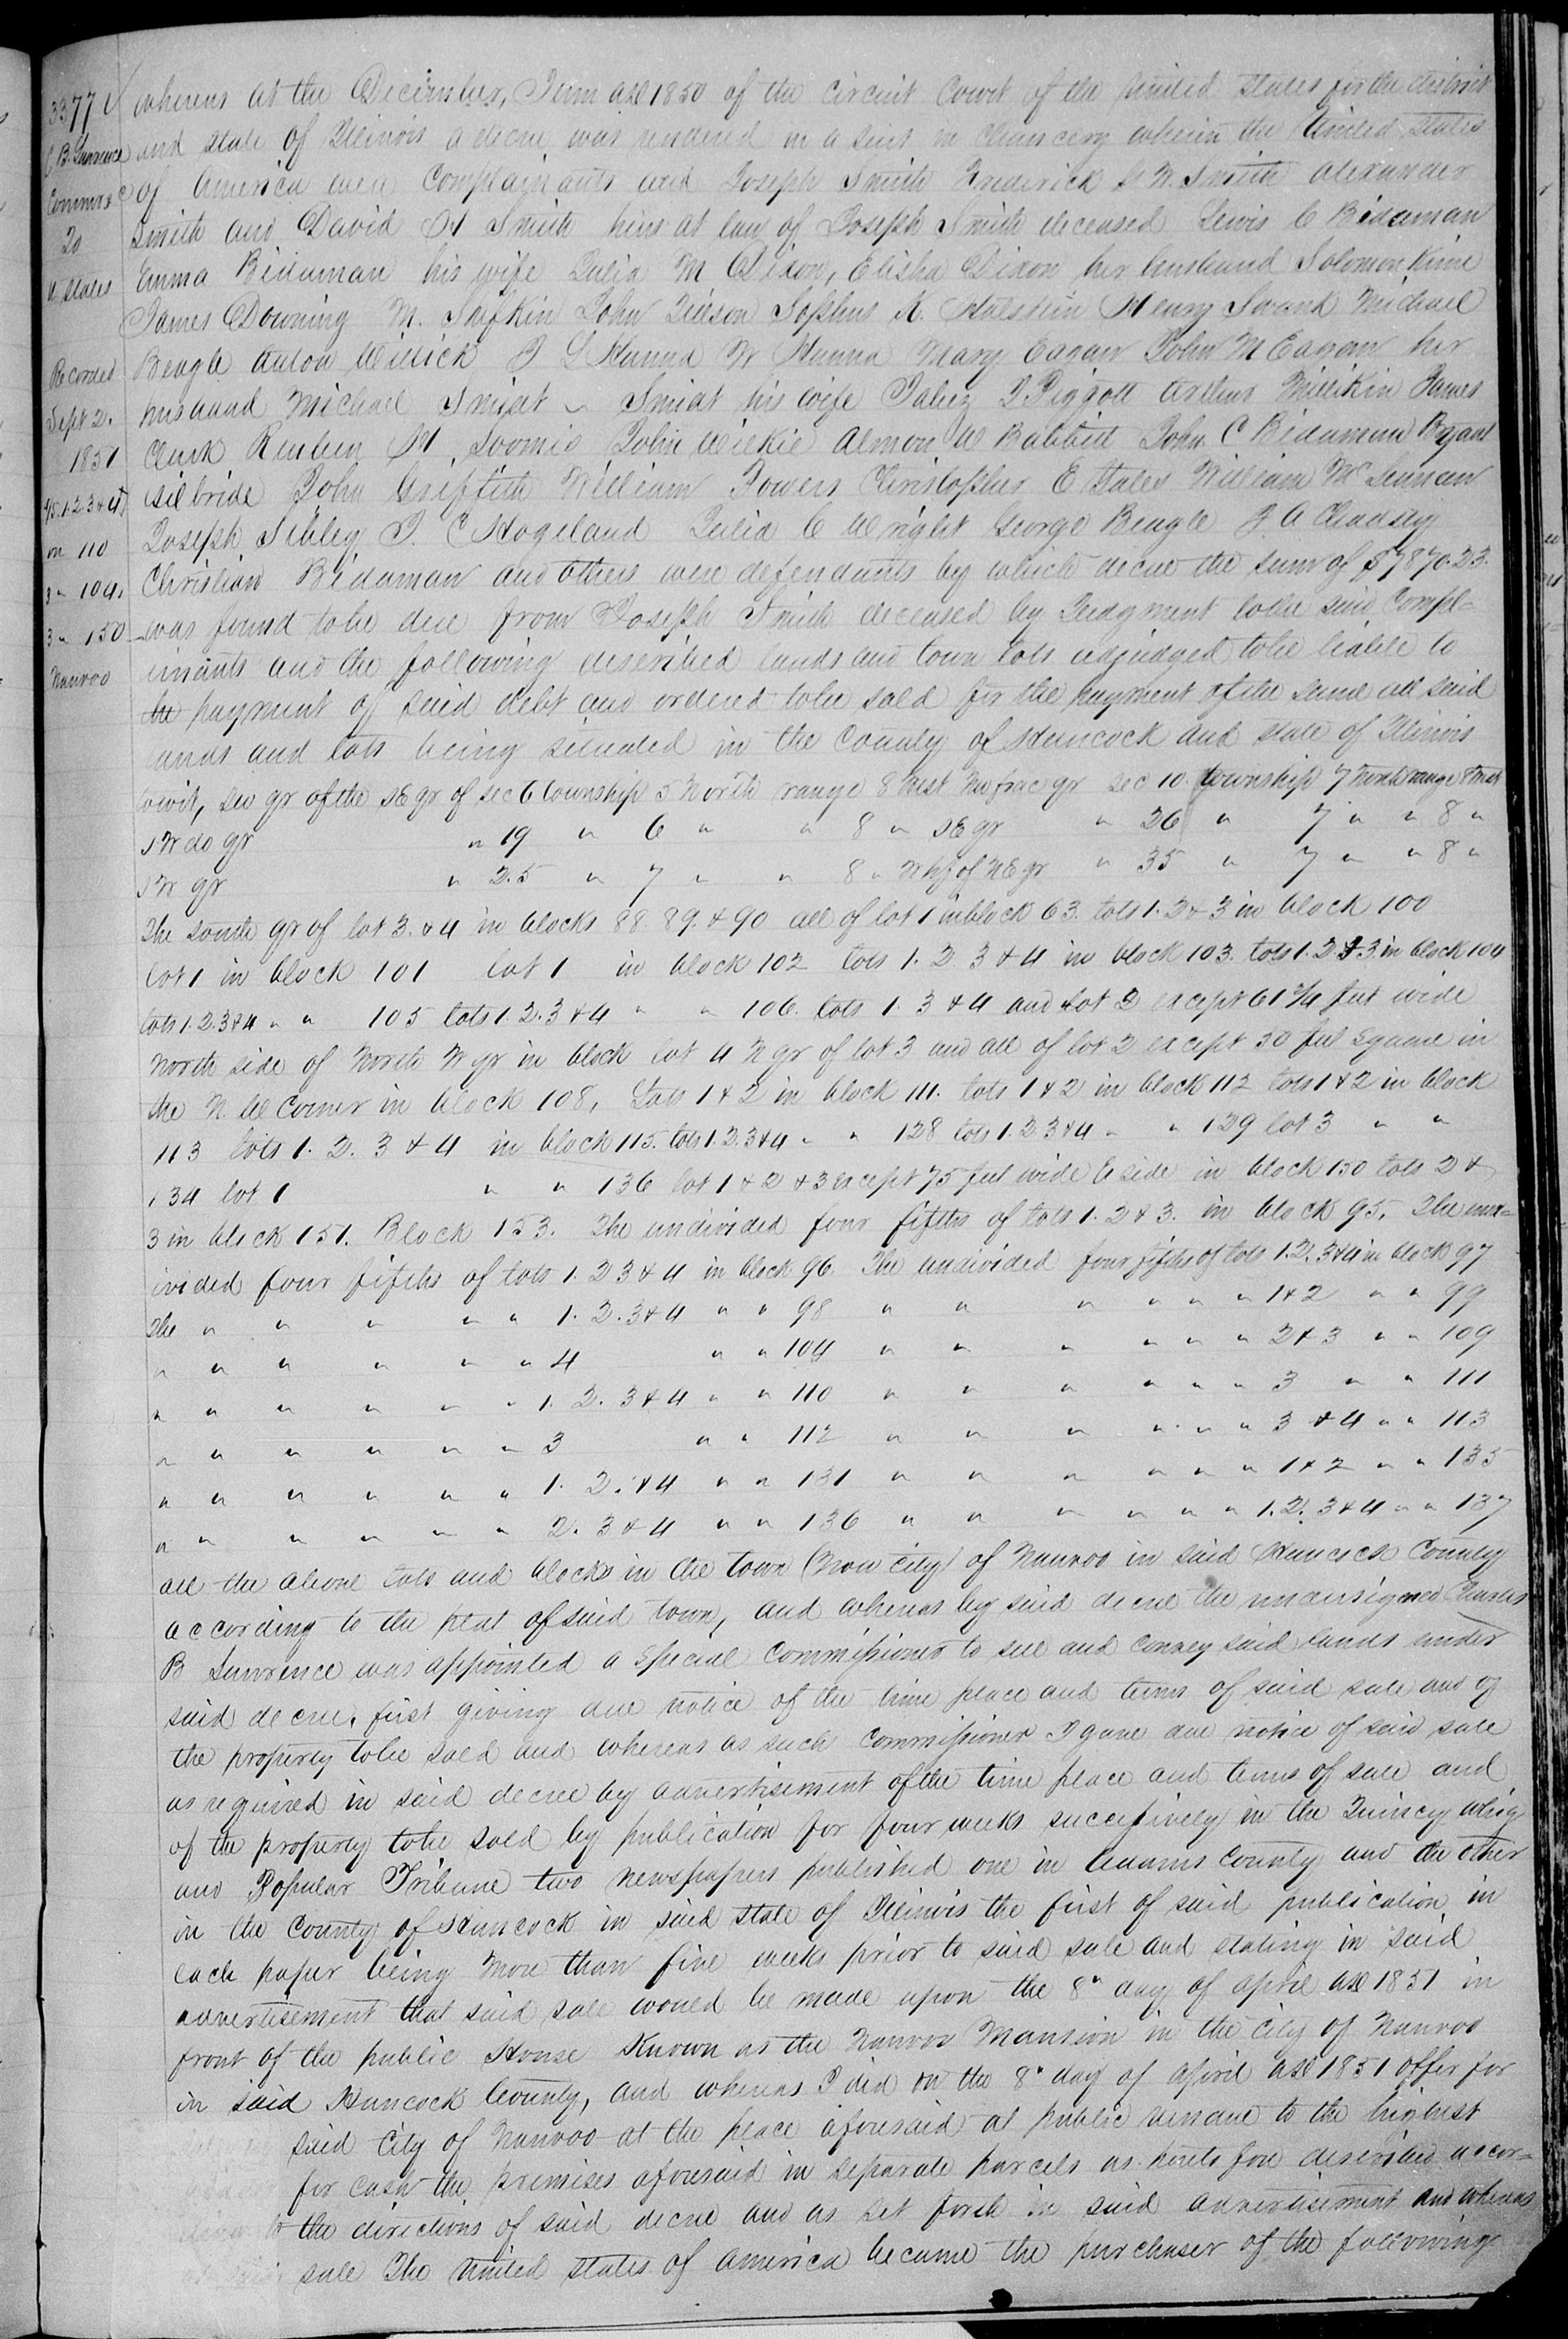 3377
C B Lawrence
Commr &c
To
U States
Recorded
Sept 2.
1851
on 110
3 " 104.
3 " 150
Nauvoo
whereas at the December, Term AD 1850 of the circuit Court of the United States for the district
and state of Illinois a decree was rendered in a suit in Chancery wherein the United States
of America were Complainants and Joseph Smith Frederick G W. Smith Alexander
Smith and David H Smith heirs at law of Joseph Smith deceased Lewis C Bidaman
Emma Bidaman his wife Julia M Dixon, Elisha Dixon her husband Solomon Kime
James Downing M. Sifkin John Tillson Sophus K. Halstein Henry Swank Michael
Beagle Anton Willick J S Hanna W Hanna Mary Eagan John M Eagan her
husband Michael Smidt " Smidt his wife Jabez D Piggott Arthur Millikin James
Clark Reuben H. Loomis John Wilkie Almon W Babbitt John C Bidaman Bryant
Gilbride John Griffith William Powers Christopher E Yates William McLennan
Joseph Sibley J. C Hogeland Julia C Wright George Beagle J A Chadsey
Christian Bidaman and others were defendants by which decree the sum of $7870.23.
was found tobe due from Joseph Smith deceased by Judgment tothe said Compl=
inants and the following described lands and town lots adjudged tobe liable to
the payment of said debt and ordered tobe sold for the payment of the same all said
ands and lots being situated in the County of Hancock and state of Illinois
towit, sw qr of the sE qr of sec 6 township 5 North range 8 West Nw frac qr sec 10 township 7 North range 8 West
sW do qr " 19 " 6 " " 8 " sE qr " 26 " 7 " " 8 "
sW qr " 25 " 7 " " 8 " W hf of NE qr " 35 " 7 " " 8 "
The south qr of lot 3. & 4 in blocks 88. 89. & 90 all of lot 1 in block 63. lots 1. 2 & 3 in block 100
lot 1 in block 101 lot 1 in block 102 lots 1. 2 3 & 4 in block 103. lots 1. 2 & 3. in block 104
lots 1. 2. 3 & 4 " " 105 lots 1. 2. 3 & 4 " " 106. lots 1. 3 & 4 and Lot 2 except 61 3/4 feet wide
North side of North W qr in block lot 4 N qr of lot 3 and all of lot 2 except 30 feet square in
the N. W corner in block 108, Lots 1 & 2 in block 111. lots 1 & 2 in block 112 lots 1 & 2 in block
113 lots 1. 2. 3 & 4 in block 115. lots 1. 2. 3 & 4 " " 128 lots 1. 2 3 & 4 " " 129 lot 3 " "
134 lot 1 " " 136 lot 1 & 2 & 3 except 75 feet wide E side in block 150 lots 2 &
3 in block 151. Block 153. The undivided four fifths of lots 1. 2 & 3. in block 95. The und=
ivided four fifths of lots 1. 2 3 & 4 in block 96. The undivided four fifths of lots 1. 2. 3 & 4 in block 97
The " " " " " 1. 2. 3 & 4 " " 98 " " " " " " 1 & 2 " " 99
" " " " " " 4 " " 104 " " " " " " 2 & 3 " " 109
" " " " " " 1. 2. 3 & 4 " " 110 " " " " " " 3 " " 111
" " " " " " 3 " " 112 " " " " " " 3 & 4 " " 113
" " " " " " 1. 2. & 4 " " 131 " " " " " " 1 & 2 " " 135
" " " " " " 2. 3 & 4 " " 136 " " " " " " 1. 2. 3 & 4 " " 137
all the above lots and blocks in the town (Now city) of Nauvoo in said Hancock County
according to the plat of said town, and whereas by said decree the undersigned Charles
B Lawrence was appointed a Special Commissioner to sell and Convey said lands under
said decree, first giving due notice of the time place and terms of said sale and of
the property tobe sold and whereas as such Commissioner I gave due notice of said sale
as required in said decree by advertisement of the time place and terms of sale and
of the property tobe sold by publication for four weeks successively in the Quincy Whig
and Popular Tribune two newspapers published one in Adams County and the other
in the County of Hancock in said state of Illinois the first of said publication in
each paper being More than five weeks prior to said sale and stating in said
advertisement that said sale would be made upon the 8" day of april AD 1851 in
front of the public House Known as the Nauvoo Mansion in the city of Nauvoo
in said Hancock County, and whereas I did on the 8" day of april AD 1851 offer for
said City of Nauvoo at the place aforesaid at public vendue to the highest
for cash the premises aforesaid in separate parcels as heretofore described accor=
the directions of said decree and as set forth in said advertisement and whereas
sale The United States of America became the purchaser of the following